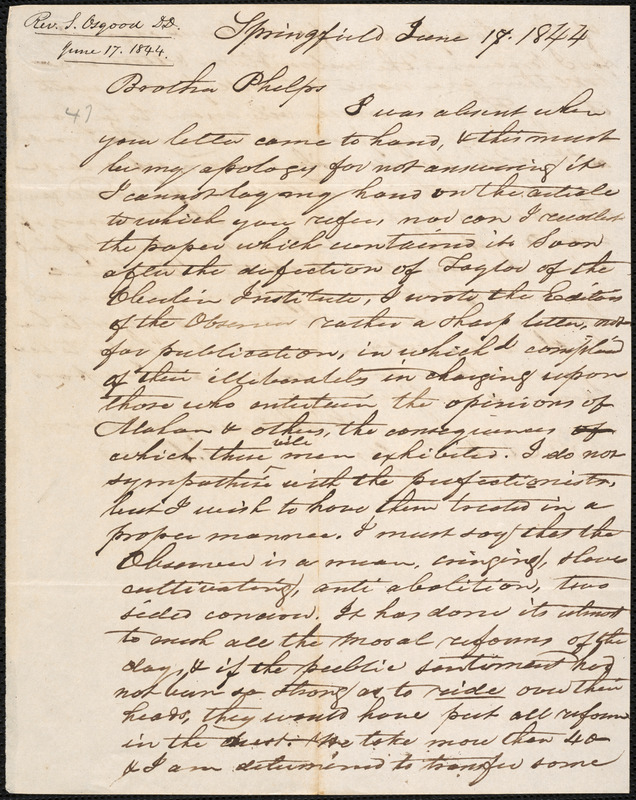 Rev. S. Osgood D.D.
June 17. 1844.
Springfield June 17. 1844
47
Brother Phelps
I was absent when
your letter came to hand, & this must
be my apology for not answering it
I cannot lay my hand on the article
to which you refer, nor can I recollect
the paper which contained it. Soon
after the defection of Taylor of the
Oberlin Institute, I wrote the Editors
of the Observer rather a sharp letter, not
for publication, in which I complain'd
of their illiberality in charging upon
those who entertain the opinions of
Mahan & others, the consequences of
which these vile men exhibited. I do not
sympathise with the perfectionists,
but I wish to have them treated in a
proper manner. I must say that the
Observer is a mean, cringing, slave
cultivating, anti abolition, two
sided concern. It has done its utmost
to crush all the moral reforms of the
day, & if the public sentiment had
not been so strong as to ride over their
heads, they would have put all reform
in the dust. We take more than 40
& I am determined to transfer some